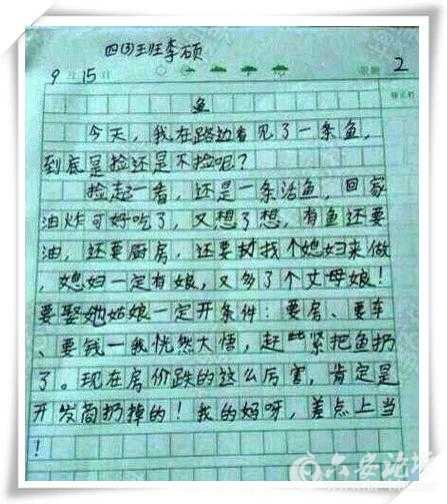 四(3)班 李硕
9 月 15 日 2
鱼
今天，我在路边看见了一条鱼，
到底是捡还是不捡呢？
捡起一看，还是一条活鱼，回家
油炸可好吃了，又想了想，有鱼还要
油，还要厨房，还要找个媳妇来做
，媳妇一定有娘，又多了个丈母娘！
要娶她姑娘一定开条件：要房、要车
、要钱—我恍然大悟，赶紧把鱼扔
了。现在房价跌的这么厉害，肯定是
开发商扔掉的！我的妈呀，差点上当
！
六安论坛